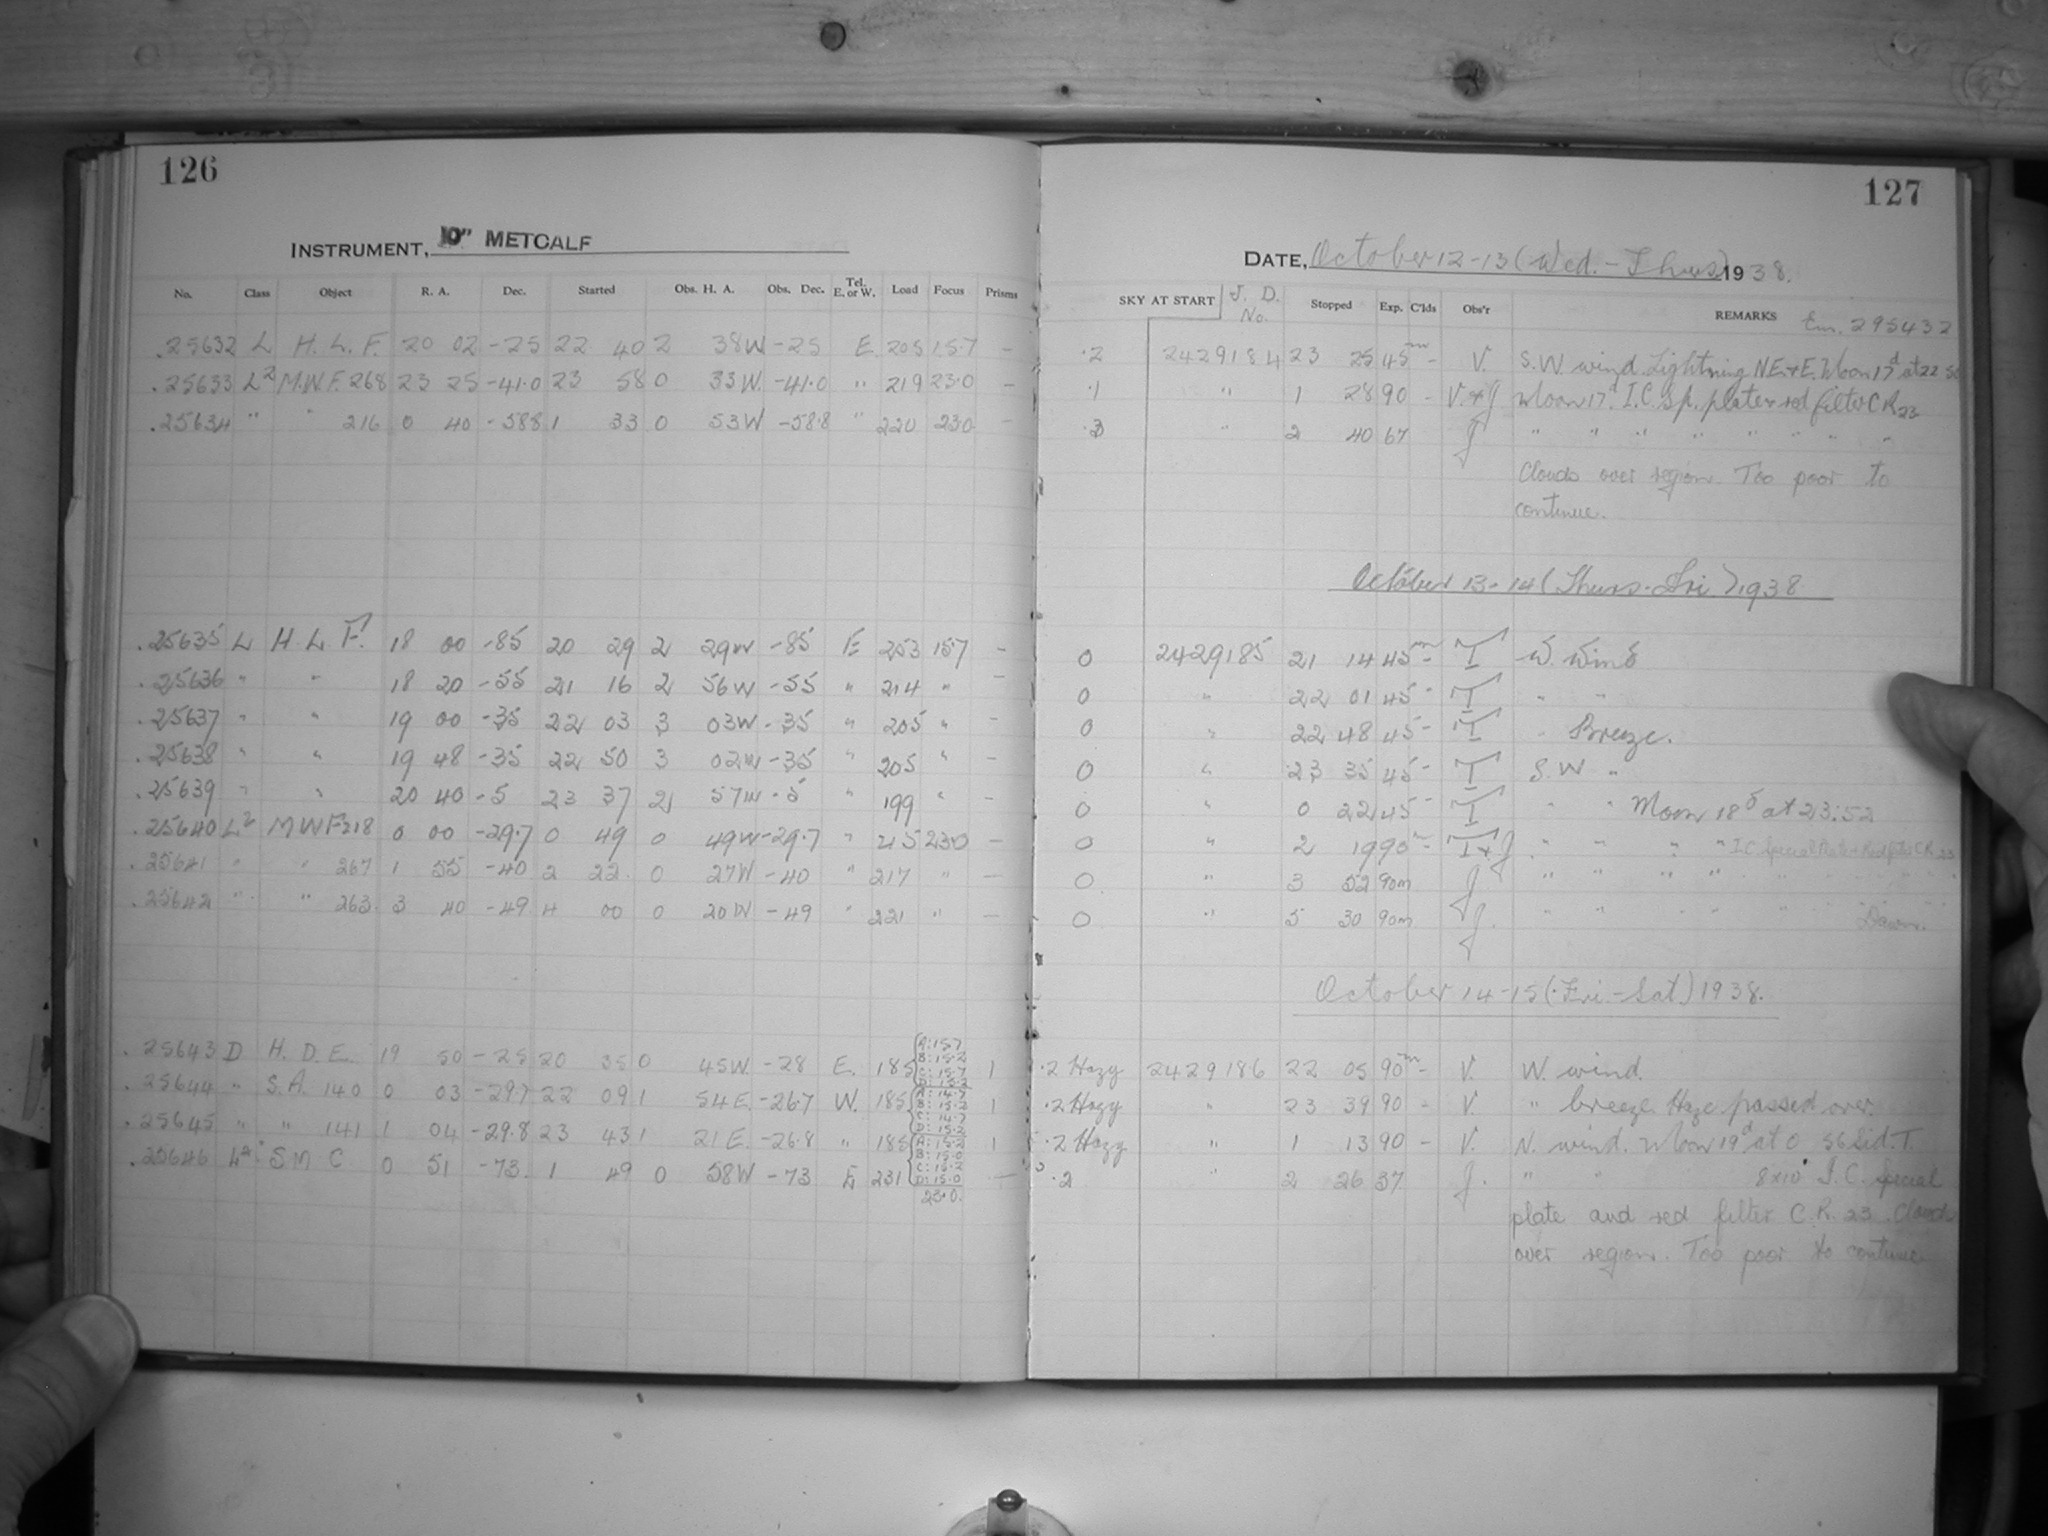 126
INSTRUMENT, 10" METCALF
No. Class Object R. A. Dec. Started Obs. H. A. Obs. Dec. Tel. E. or W. Load Focus Prisms
.25632 L H. L. F. 20 02 -25 22 40 2 38W -25 E. 205 15.7 -
.25633 L² M.W.F. 268 23 25 -41.0 23 58 0 33W. -41.0 " 219 23.0 -
.25634 " " 216 0 40 -58.8 1 33 0 53W -58.8 " 220 23.0 -
.25635 L H. L. F. 18 00 -85 20 29 2 29W -85 E 253 15.7 -
.25636 " " 18 20 -55 21 16 2 56W -55 " 214 " -
.25637 " " 19 00 -35 22 03 3 03W -35 " 205 " -
.25638 " " 19 48 -35 22 50 3 02W -35 " 205 " -
.25639 " " 20 40 -5 23 37 2 57W -5 " 199 " -
.25640 L² MWF 218 0 00 -29.7 0 49 0 49W -29.7 " 215 23.0 -
.25641 " " 267 1 55 -40 2 22 0 27W -40 " 217 " -
.25642 " " 263 3 40 -49 4 00 0 20W -49 " 221 " -
.25643 D H. D. E. 19 50 -28 20 35 0 45W. -28 E. 185 A: 15.7 B: 15.2 C: 15.7 D: 15.2 1
.25644 " S.A. 140 0 03 -29.7 22 09 1 54E. -26.7 W. 185 A: 14.7 B: 15.2 C: 14.7 D: 15.2 1
.25645 " " 141 1 04 -29.8 23 43 1 21E. -26.8 " 185 A: 15.2 B: 15.0 C: 15.2 D: 15.0 1
.25646 L² S M C 0 51 -73. 1 49 0 58W -73 E 231 23.0. -
127
DATE, October 12-13 (Wed.-Thurs) 1938.
SKY AT START J. D. No. Stopped Exp. C'lds Obs'r REMARKS 295432
.2 2429184 23 25 45m - V. S.W. wind. Lightning N.E. & E. Moon 17d at 22
.1 " 1 28 90 - V. & J Moon 17d. I.C. Sp. plate & red filter C.R. 23
.3 " 2 40 67 J " " " " " " " "
Clouds over region. Too poor to
continue.
October 13-14 (Thurs-Fri) 1938
0 2429185 21 14 45m - T W. Wind
0 " 22 01 45 - T " "
0 " 22 48 45 - T " Breeze.
0 " 23 35 45 - T S.W "
0 " 0 22 45 - T " " Moon 18d at 23:52
0 " 2 19 90m - T & J " " " " I.C. Special Plate & Red filter C.R. 23
0. " 3 52 90m J. " " " "
0 " 5 30 90m J. " " " " Dawn.
October 14-15 (Fri-Sat) 1938.
.2 Hazy 2429186 22 05 90m - V. W. wind.
.2 Hazy " 23 39 90 - V. " breeze. Haze passed over.
.2 Hazy " 1 13 90 - V. N. wind. Moon 19d at 0 56 Sid. T.
.2 " 2 26 37 J. " " 8x10 I.C. Special
plate and red filter C.R. 23. Clouds
over region. Too poor to continue